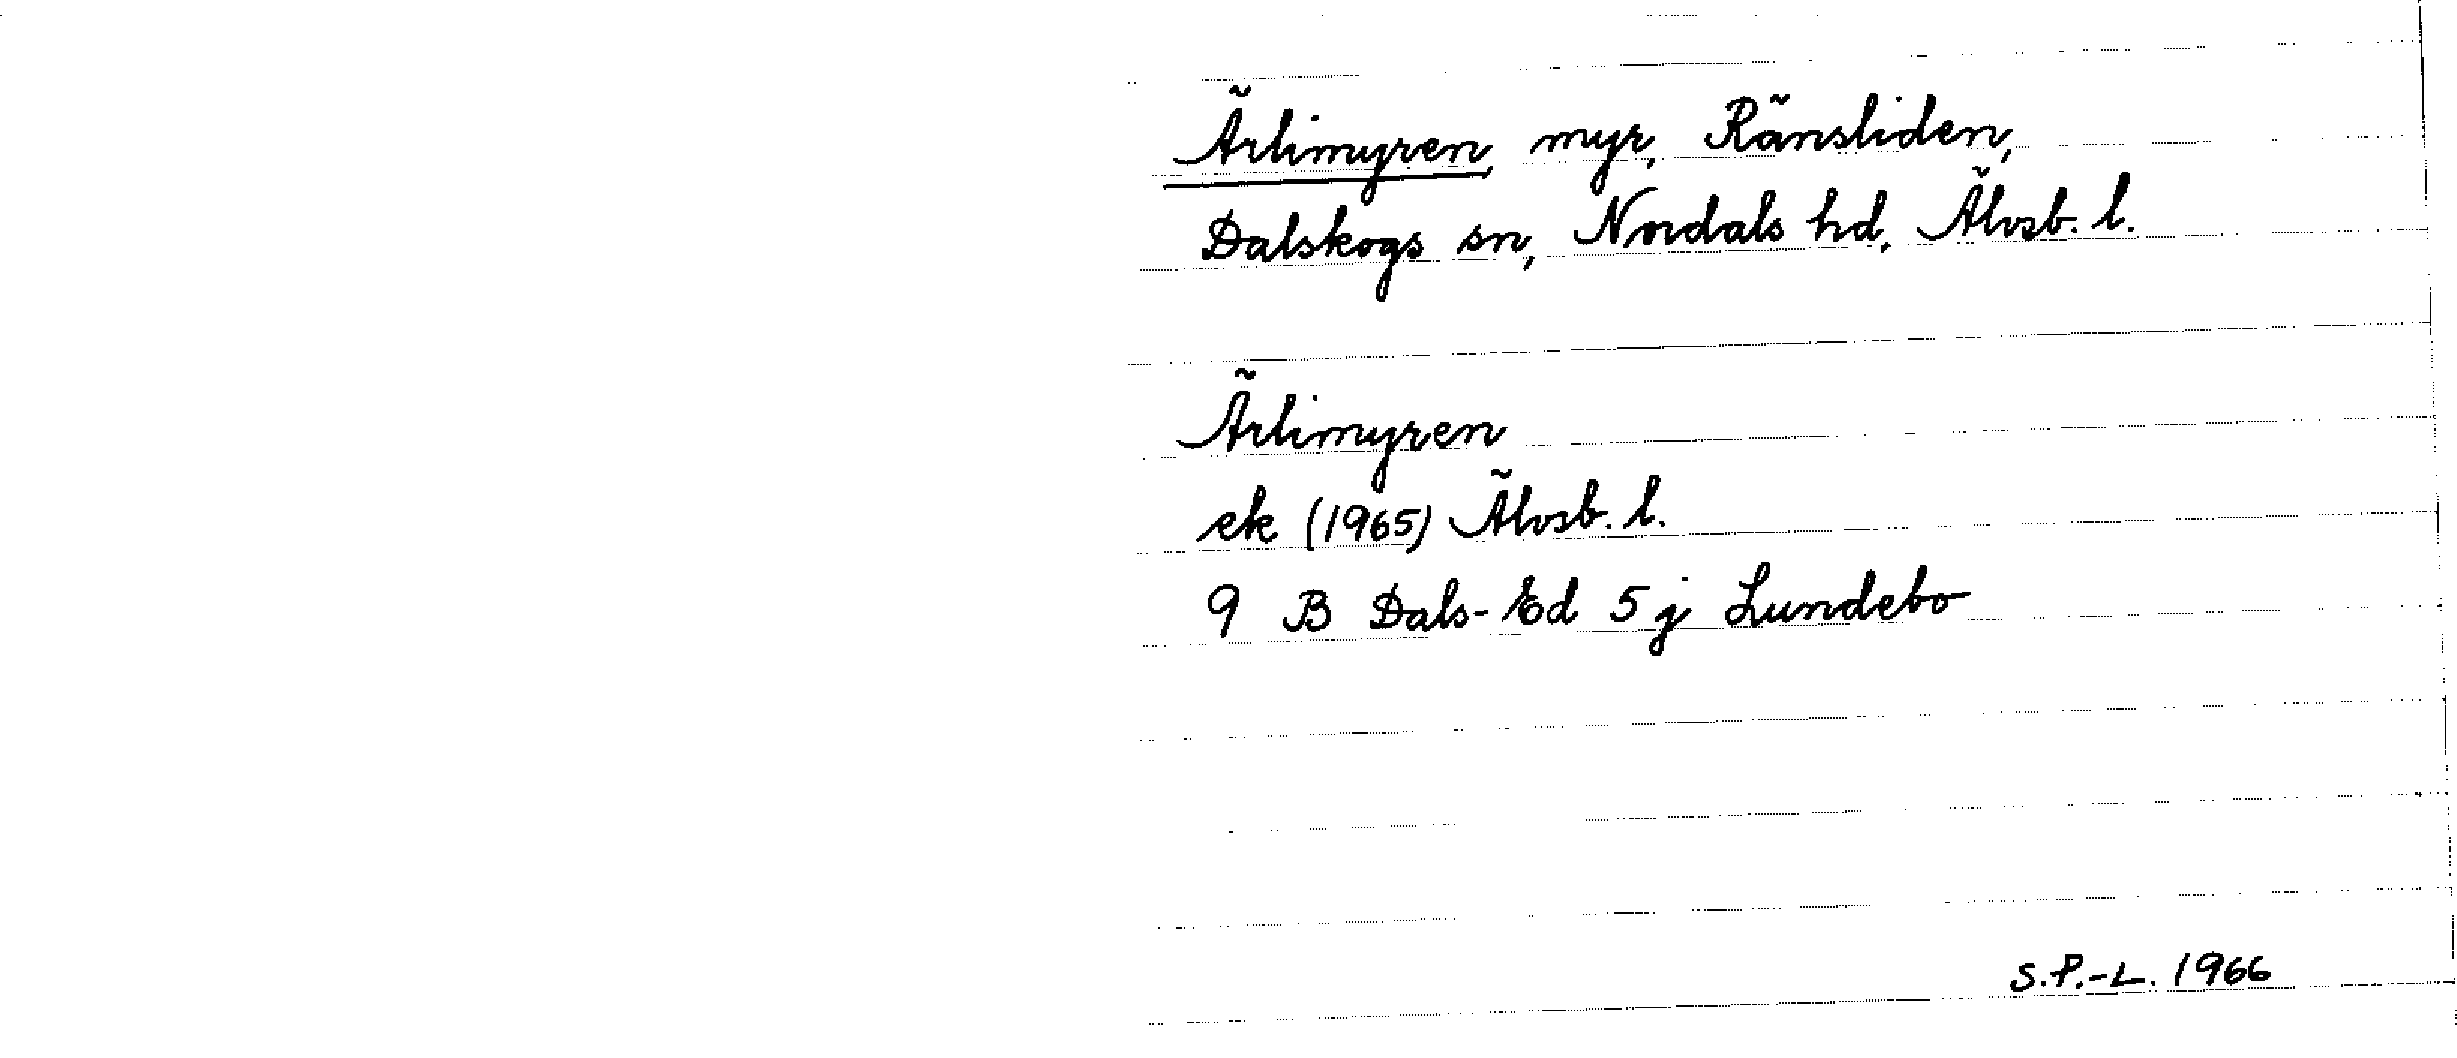 Ärlimyren, myr, Ränsliden,
Dalskogs sn, Nordals hd, Älvsb. l.
Ärlimyren
ek (1965) Älvsb. l.
9 B Dals-Ed 5 j Lundebo
S.P.-L. 1966